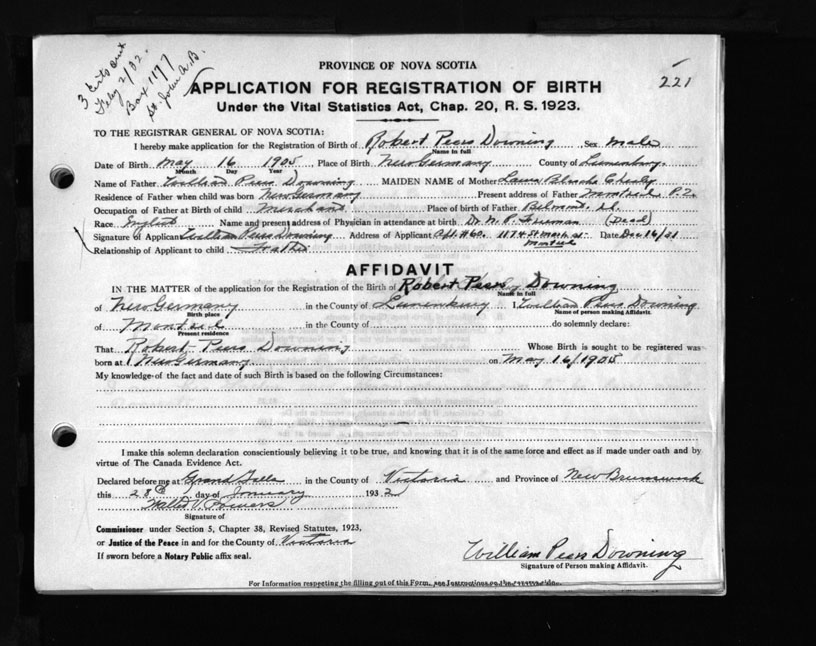 3 certs out
Feby 2/32.
Box 1177
St. John N.B.
221
PROVINCE OF NOVA SCOTIA
APPLICATION FOR REGISTRATION OF BIRTH
Under the Vital Statistics Act, Chap. 20, R. S. 1923.
TO THE REGISTRAR GENERAL OF NOVA SCOTIA:
I hereby make application for the Registration of Birth of Robert Peers Downing Sex Male
Name in full
Date of Birth May 16 1905 Place of Birth New Germany County of Lunenburg.
Month Day Year
Name of Father William Peers Downing MAIDEN NAME of Mother Laura Blanche Chesley
Residence of Father when child was born New Germany Present address of Father Montreal P.Q.
Occupation of Father at Birth of child Merchant Place of birth of Father Belmont,
Race English Name and present address of Physician in attendance at birth Dr. M. P. Freeman (Dead)
Signature of Applicant William Peers Downing Address of Applicant Apt. #60. 1174 St. Mark St. Date Dec 16/31
Montreal
Relationship of Applicant to child Father
AFFIDAVIT
IN THE MATTER of the application for the Registration of the Birth of Robert Peers Downing
Name in full
of New Germany in the County of Lunenburg I, William Peers Downing
Birth place Name of person making Affidavit.
of Montreal in the County of do solemnly declare:
Present residence
That Robert Peers Downing Whose Birth is sought to be registered was
born at New Germany on May 16/1905
My knowledge of the fact and date of such Birth is based on the following Circumstances:
I make this solemn declaration conscientiously believing it to be true, and knowing that it is of the same force and effect as if made under oath and by
virtue of The Canada Evidence Act.
Declared before me at Grand Falls in the County of Victoria and Province of New Brunswick
this 28th day of January 1932
Signature of
Commissioner under Section 5, Chapter 38, Revised Statutes, 1923,
or Justice of the Peace in and for the County of Victoria
If sworn before a Notary Public affix seal.
William Peers Downing
Signature of Person making Affidavit.
For Information respecting the filling out of this Form, see Instructions on the reverse side.